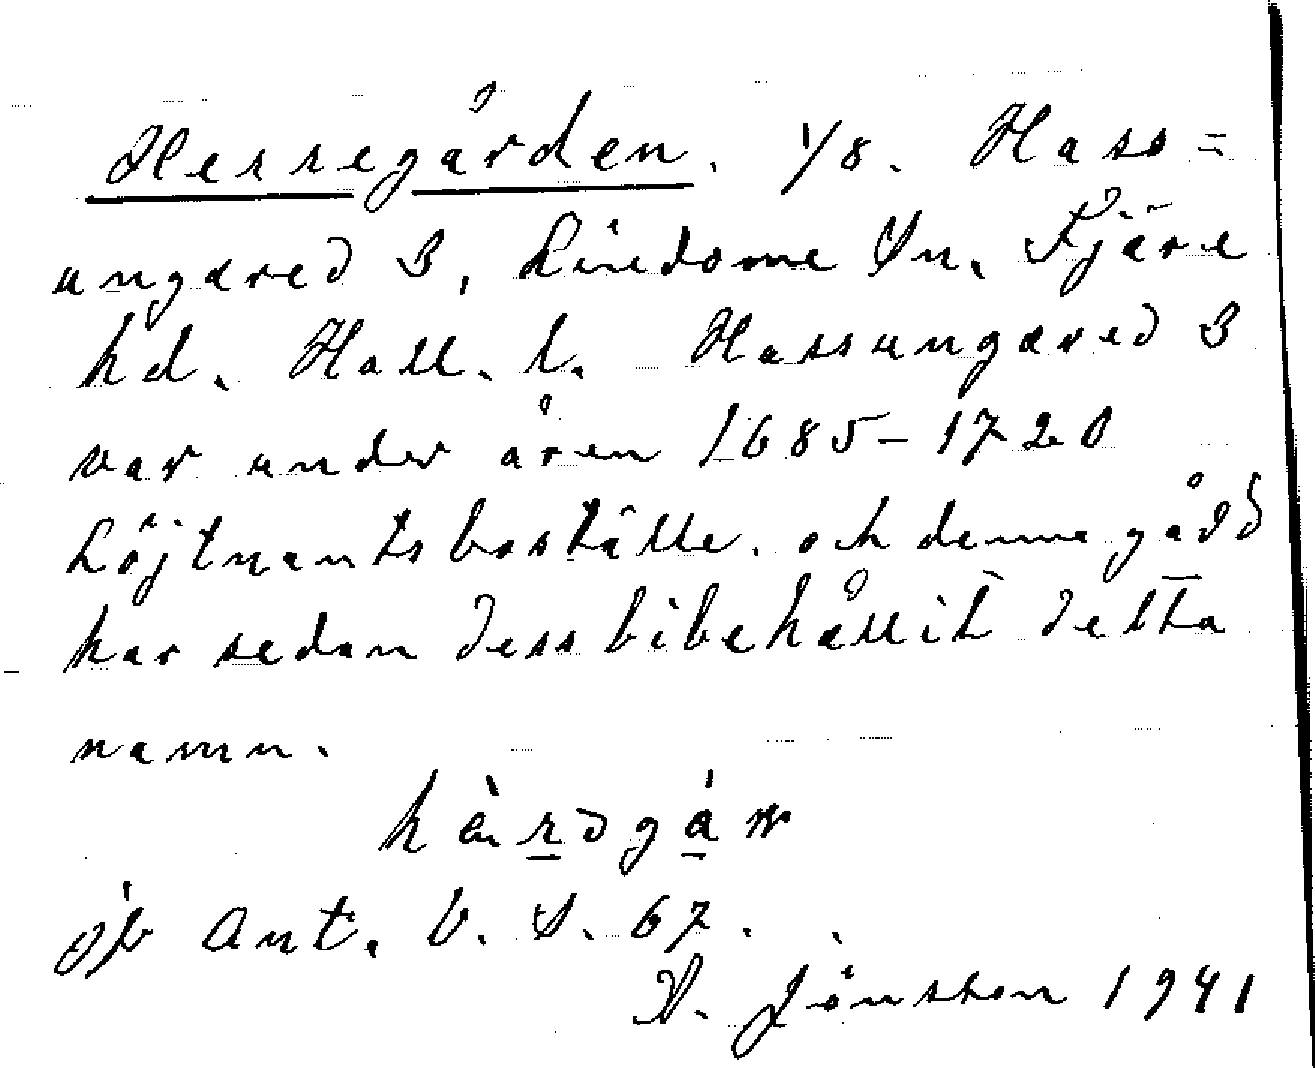 Herregården. 1/8. Hass=
ungared 3, Lindome Sn. Fjäre
hd. Hall. l. Hassungared 3
var under åren 1685-1720
Löjtnantsboställe. och denna gård
har sedan dess bibehållit detta
namn.
Ant. b. S. 67.
Jönsson 1941